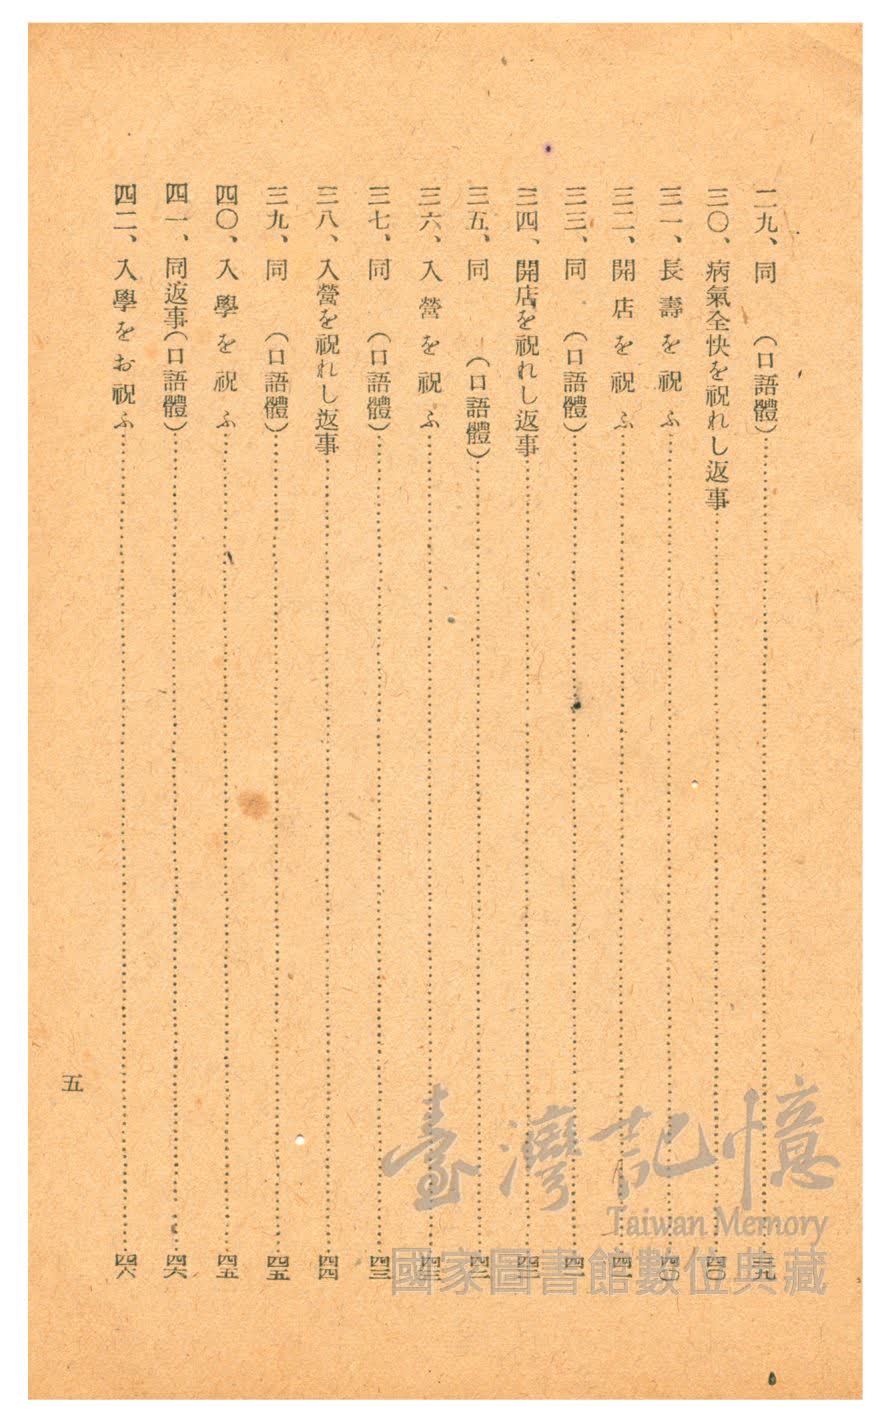 二九、同　（口語體）……三九
三〇、病氣全快を祝れし返事……四〇
三一、長壽を祝ふ……四〇
三二、開店を祝ふ……四一
三三、同　（口語體）……四一
三四、開店を祝れし返事……四二
三五、同　（口語體）……四二
三六、入營を祝ふ……四三
三七、同　（口語體）……四三
三八、入營を祝れし返事……四四
三九、同　（口語體）……四五
四〇、入學を祝ふ……四五
四一、同返事（口語體）……四六
四二、入學をお祝ふ……四六
五
臺灣記憶
Taiwan Memory
國家圖書館數位典藏